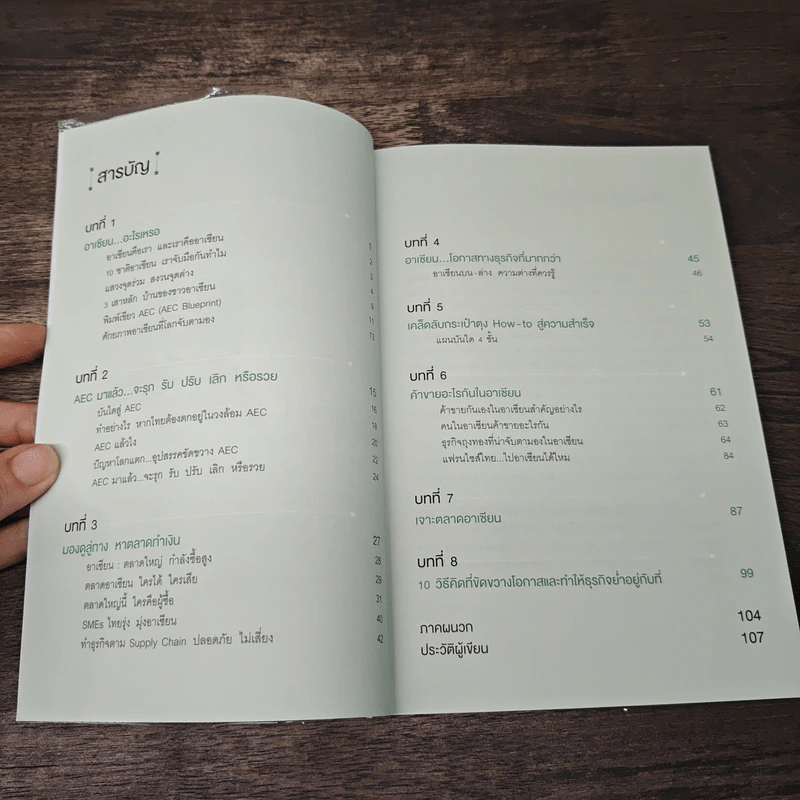 สารบัญ
บทที่ 1
อาเซียน...อะไรเหรอ 1
อาเซียนคือเรา และเราคืออาเซียน 2
10 ชาติอาเซียน เราจับมือกันทำไม 3
แสวงจุดร่วม สงวนจุดต่าง 4
3 เสาหลัก บ้านของชาวอาเซียน 9
พิมพ์เขียว AEC (AEC Blueprint) 11
ศักยภาพอาเซียนที่โลกจับตามอง 13
บทที่ 2
AEC มาแล้ว...จะรุก รับ ปรับ เลิก หรือรวย 15
บันไดสู่ AEC 16
ทำอย่างไร หากไทยต้องตกอยู่ในวงล้อม AEC 18
AEC แล้วไง 20
ปัญหาโลกแตก...อุปสรรคขัดขวาง AEC 22
AEC มาแล้ว...จะรุก รับ ปรับ เลิก หรือรวย 24
บทที่ 3
มองดูลู่ทาง หาตลาดทำเงิน 27
อาเซียน : ตลาดใหญ่ กำลังซื้อสูง 28
ตลาดอาเซียน ใครได้ ใครเสีย 29
ตลาดใหญ่นี้ ใครคือผู้ซื้อ 31
SMEs ไทยรุ่ง มุ่งอาเซียน 40
ทำธุรกิจตาม Supply Chain ปลอดภัย ไม่เสี่ยง 42
บทที่ 4
อาเซียน...โอกาสทางธุรกิจที่มากกว่า 45
อาเซียนบน-ล่าง ความต่างที่ควรรู้ 46
บทที่ 5
เคล็ดลับกระเป๋าตุง How-to สู่ความสำเร็จ 53
แผนบันได 4 ขั้น 54
บทที่ 6
ค้าขายอะไรกันในอาเซียน 61
ค้าขายกันเองในอาเซียนสำคัญอย่างไร 62
คนในอาเซียนค้าขายอะไรกัน 63
ธุรกิจถุงทองที่น่าจับตามองในอาเซียน 64
แฟรนไชส์ไทย...ไปอาเซียนได้ไหม 84
บทที่ 7
เจาะตลาดอาเซียน 87
บทที่ 8
10 วิธีคิดที่ขัดขวางโอกาสและทำให้ธุรกิจย่ำอยู่กับที่ 99
ภาคผนวก 104
ประวัติผู้เขียน 107